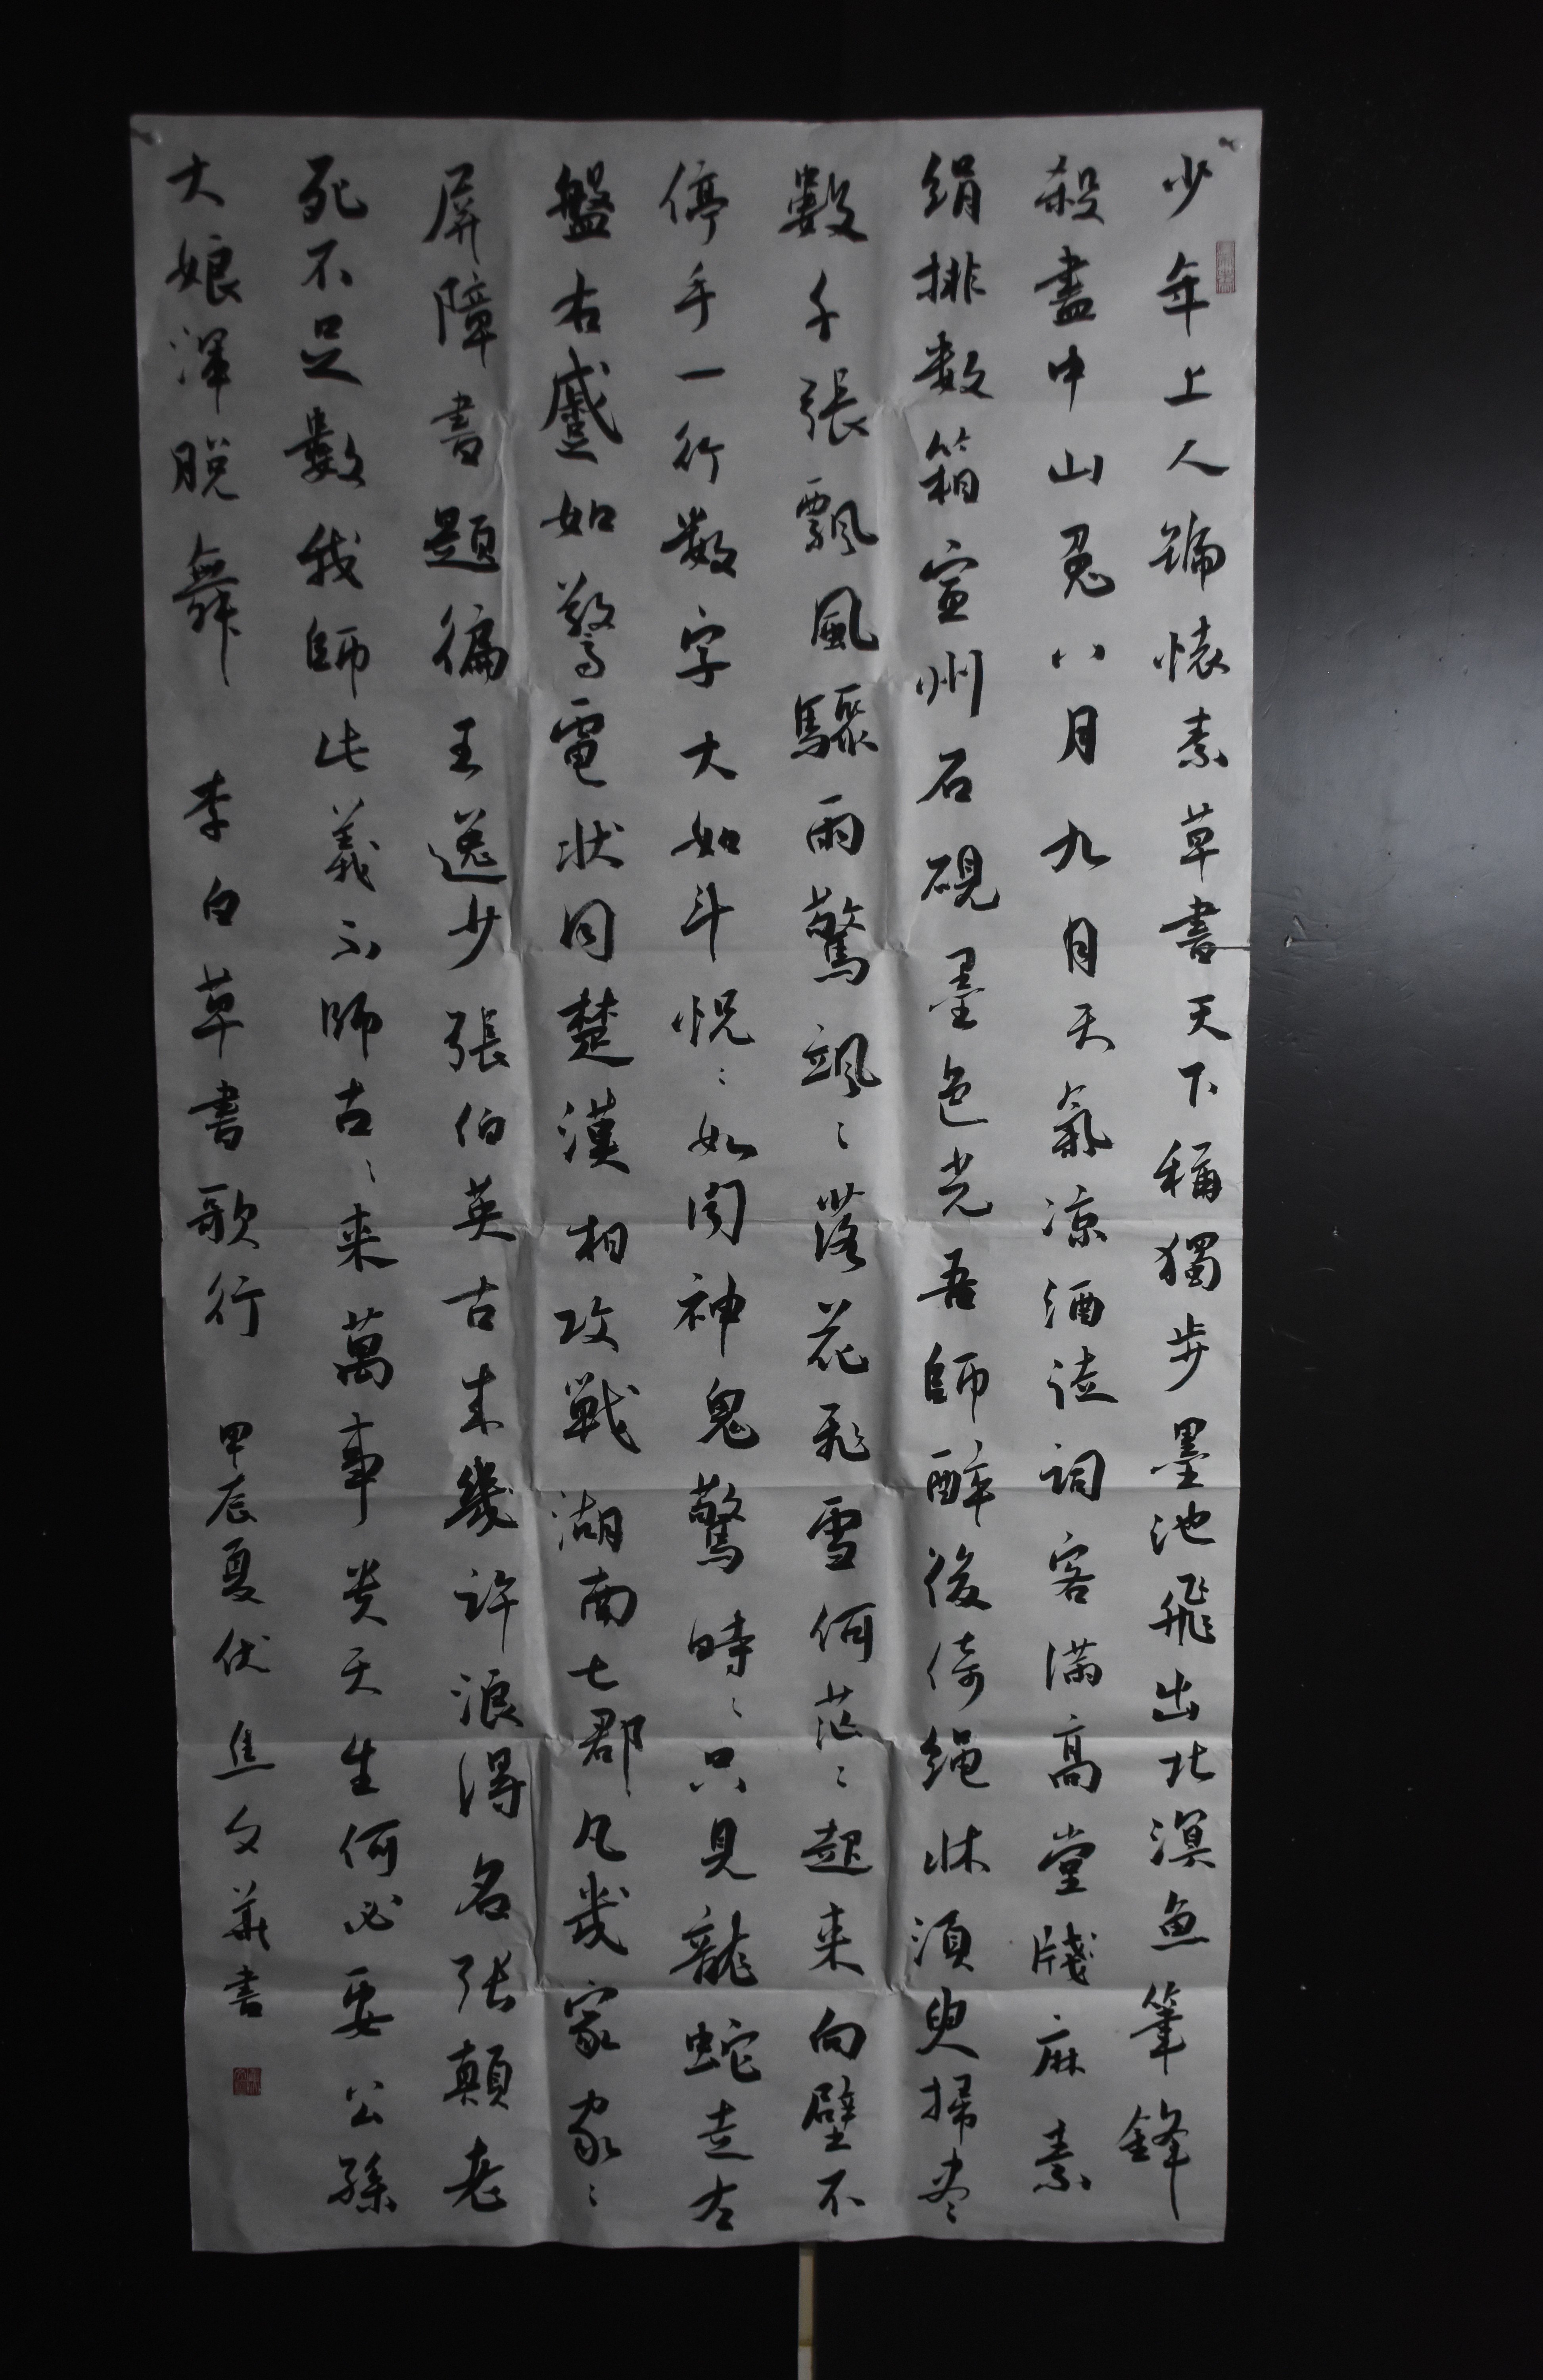 少年上人號懷素草書天下稱獨步墨池飛出北溟魚筆鋒
殺盡中山兔八月九月天氣涼酒徒詞客滿高堂牋麻素
絹排数箱宣州石硯墨色光吾師醉後倚绳牀須臾掃盡
數千張飄風驟雨驚颯〻落花飛雪何茫〻起来向壁不
停手一行數字大如斗怳〻如聞神鬼驚時〻只見龍蛇走左
盤右蹙如驚電狀同楚漢相攻戰湖南七郡凡幾家家〻
屏障書題徧王逸少張伯英古来幾許浪得名张顛老
死不足數我師此義不師古〻来萬事贵天生何必要公孫
大娘渾脱舞 李白草書歌行 甲辰夏伏焦文華書